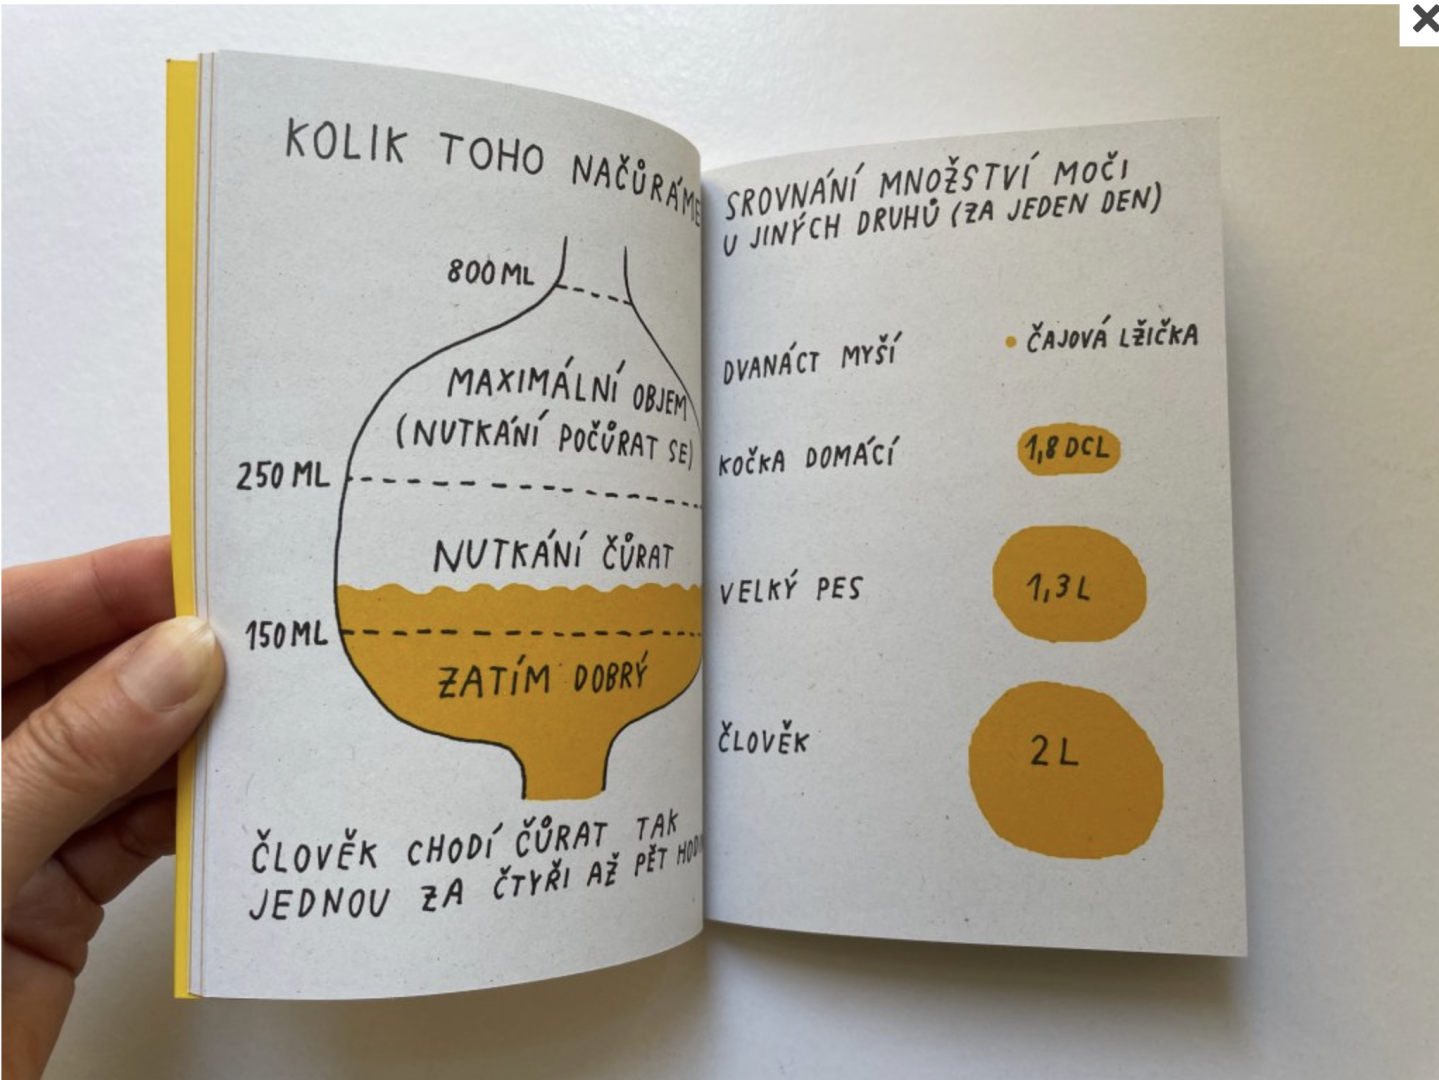 KOLIK TOHO NAČŮRÁME
800 ML
MAXIMÁLNÍ OBJEM
(NUTKÁNÍ POČŮRAT SE)
250 ML
NUTKÁNÍ ČŮRAT
150 ML
ZATÍM DOBRÝ
ČLOVĚK CHODÍ ČŮRAT TAK
JEDNOU ZA ČTYŘI AŽ PĚT
SROVNÁNÍ MNOŽSTVÍ MOČI
U JINÝCH DRUHŮ (ZA JEDEN DEN)
DVANÁCT MYŠÍ
ČAJOVÁ LŽIČKA
KOČKA DOMÁCÍ
1,8 DCL
VELKÝ PES
1,3 L
ČLOVĚK
2 L